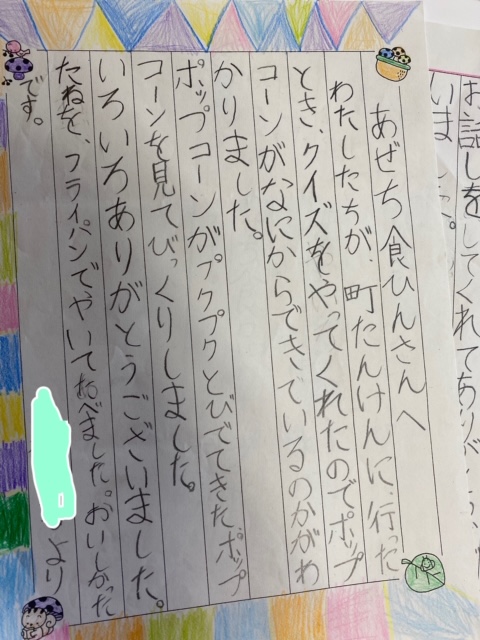 あぜち食ひんさんへ
わたしたちが、町たんけんに、行った
とき、クイズをやってくれたのでポップ
コーンがなにからできているのかがわ
かりました。
ポップコーンがプクプクとびでてきた、ポップ
コーンを見てびっくりしました。
いろいろありがとうございました。
たねを、フライパンでやいてたべました。おいしかった
です。
より
お話しをしてくれてあり
いま